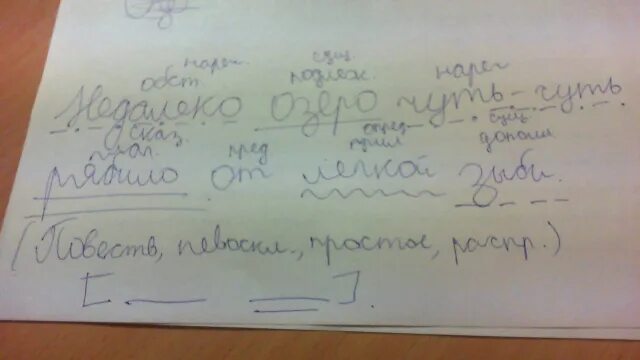 нареч. сущ. нареч
обст. подлеж.
Недалеко озеро чуть-чуть
сказ. опред. сущ.
глаг. пред прил дополн
рябило от легкой зыби.
(Повеств, невоскл., простое, распр.)
[ ].